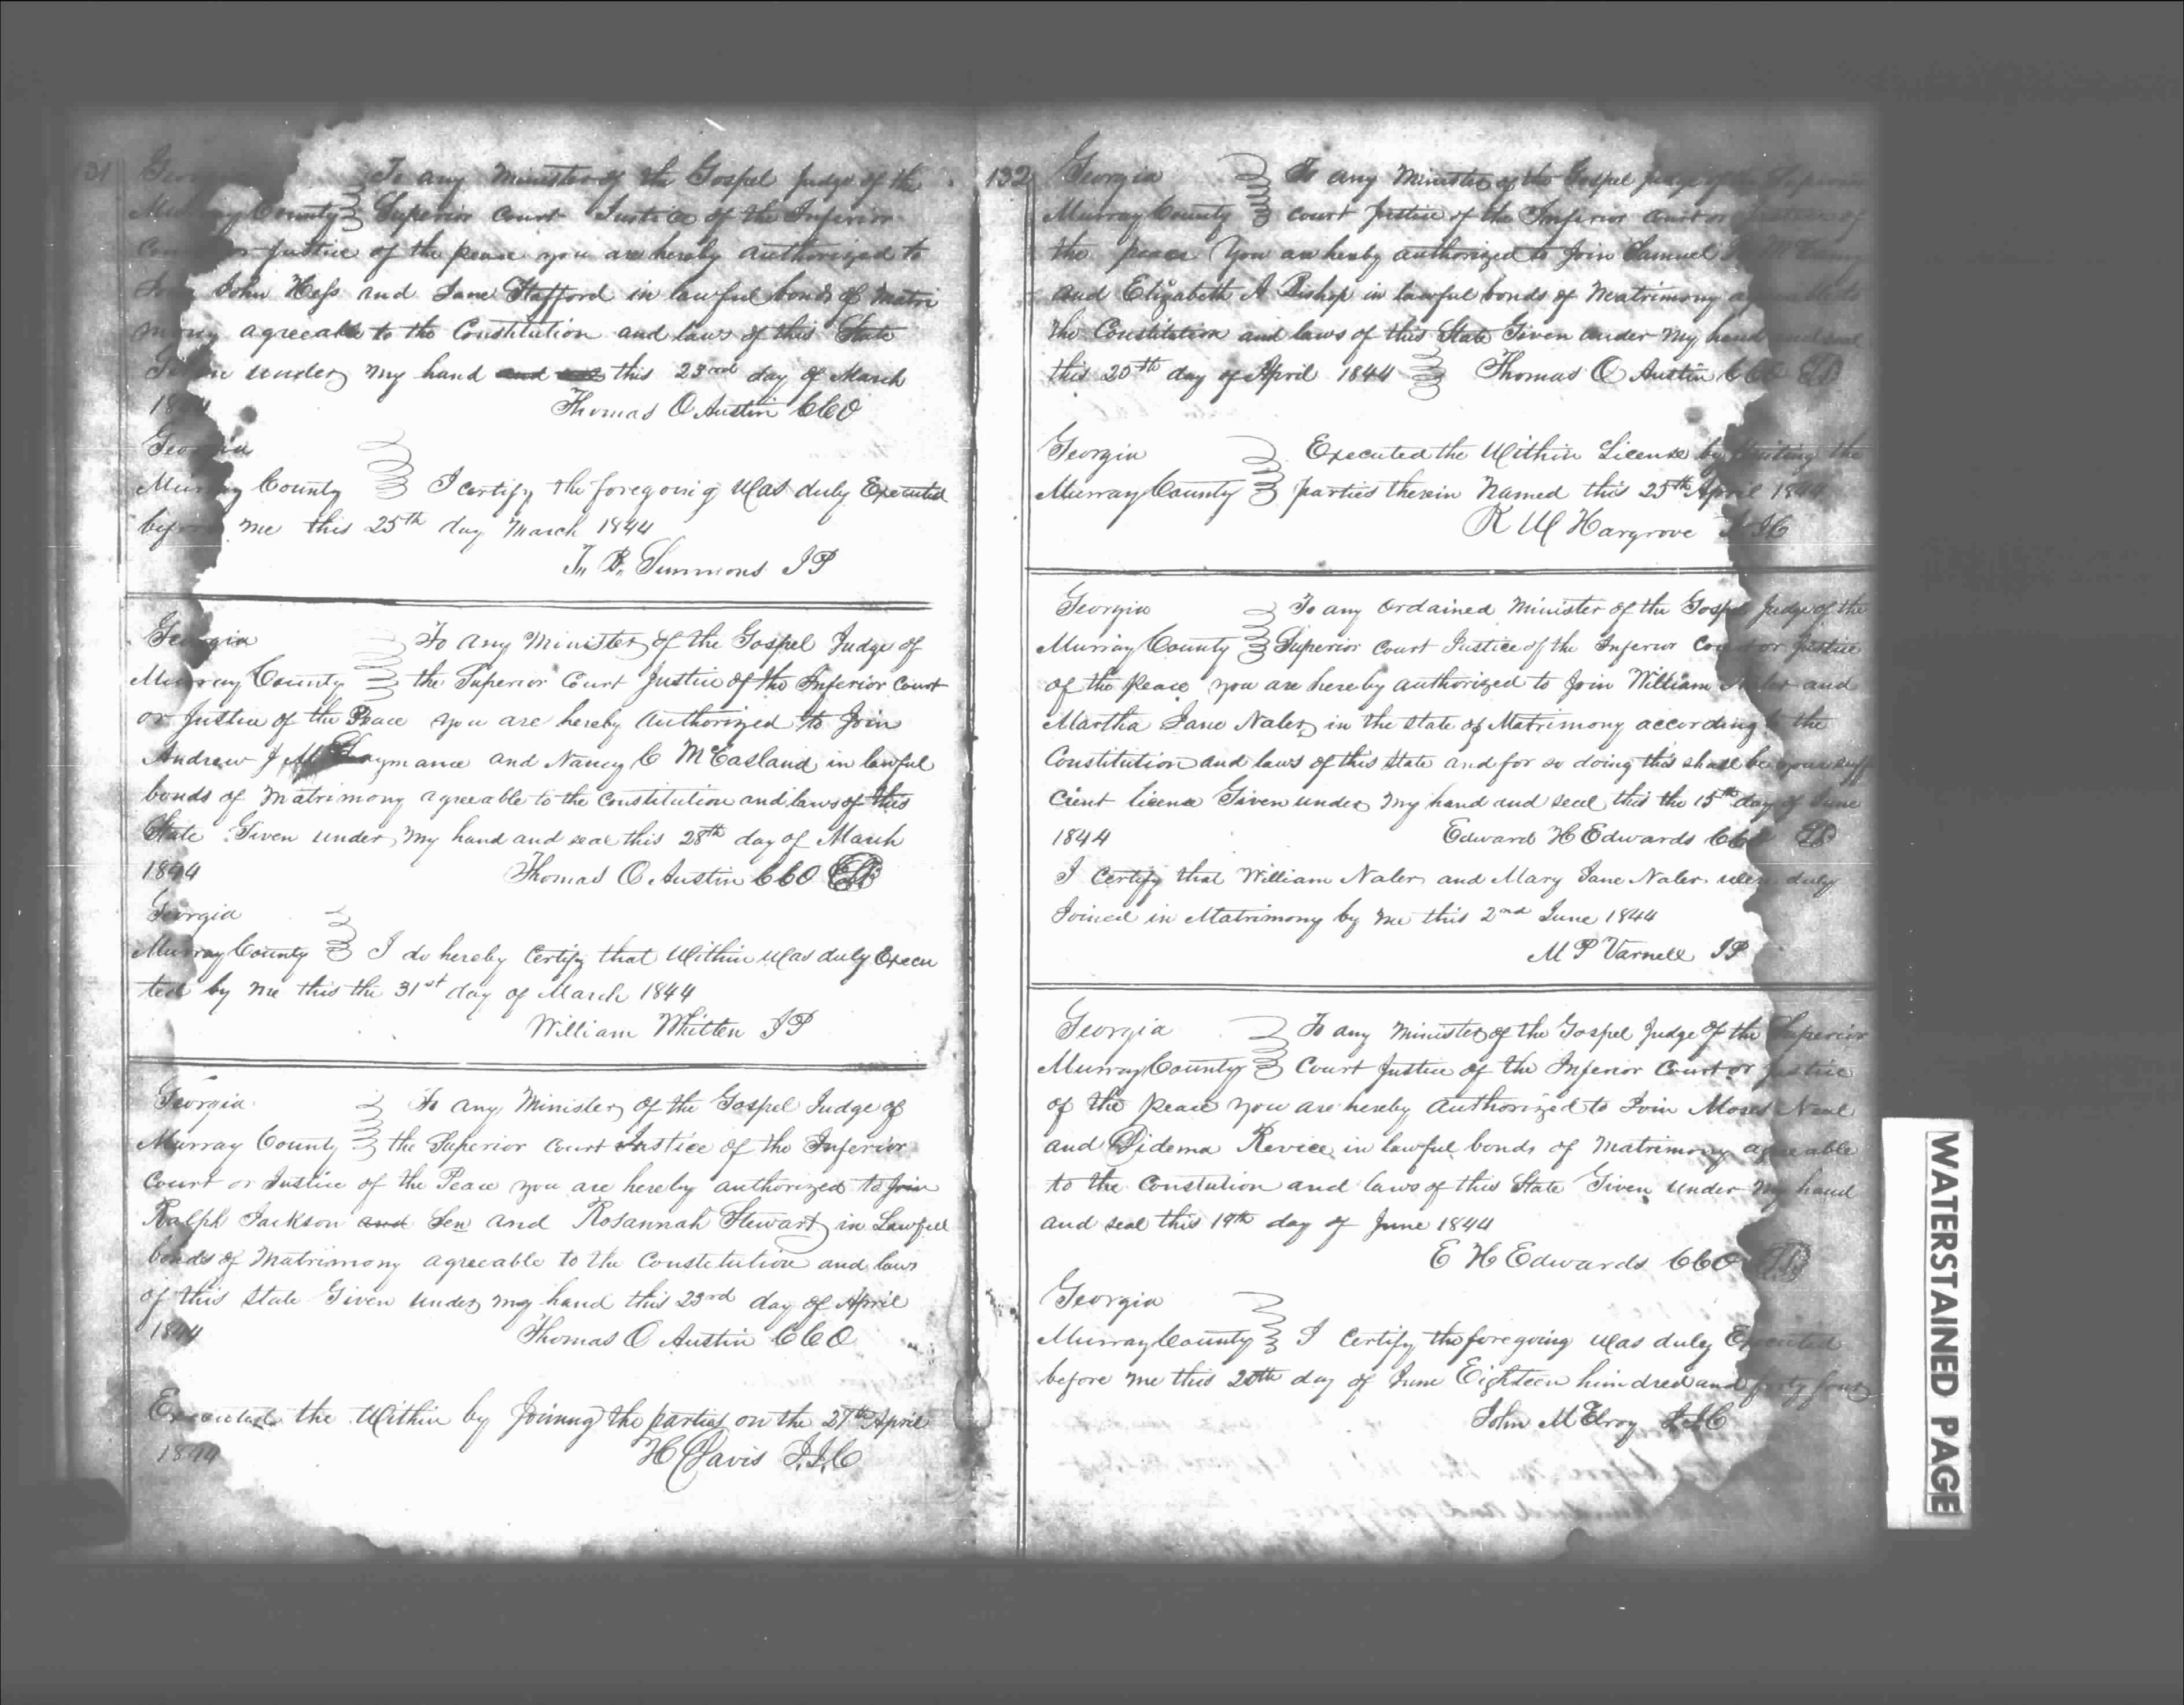 131
Georgia To any Minister of the Gospel Judge of the
Murray County Superior Court Justice of the Inferior
Court or Justice of the peace you are hereby authorized to
Join John Hess and Jane Stafford in lawful bonds of Matri
mony agreeable to the Constitution and laws of this State
Given under my hand and seal this 23rd day of March
1844 Thomas O Austin CCO
Georgia
Murray County I certify the foregoing was duly Executed
before me this 25th day March 1844
T. R. Simmons JP
Georgia To any Minister of the Gospel Judge of
Murray County the Superior Court Justice of the Inferior Court
or Justice of the Peace you are hereby authorized to Join
Andrew J and Nancy C McCasland in lawful
bonds of Matrimony agreeable to the Constitution and laws of this
State Given under my hand and seal this 28th day of March
1844 Thomas O Austin CCO
Georgia
Murray County I do hereby Certify that Within was duly Execu
ted by me this the 31st day of March 1844
William Whitten JP
Georgia To any Minister of the Gospel Judge of
Murray County the Superior Court Justice of the Inferior
Court or Justice of the Peace you are hereby authorized to Join
Ralph Jackson and Sen and Rosannah Stewart in Lawfull
bonds of Matrimony agreeable to the Constetution and laws
of this State Given under my hand this 23rd day of April
1844 Thomas O Austin CCO
Executed the Within by Joinng the parties on the 27th April
1844 H Davis J.I.C
132
Georgia To any Minister of the Gospel Judge of the Superior
Murray County Court Justice of the Inferior Court or Justice of
the peace You are hereby authorized to Join Samuel
and Elizabeth A Bishop in lawful bonds of Matrimony agreeable to
the Constitution and laws of this State Given under my hand and seal
this 20th day of April 1844 Thomas O Austin CCO
Georgia Executed the Within License by Uniting the
Murray County parties therein Named this 25th April 1844
R W Hargrove JIC
Georgia To any Ordained Minister of the Gospel Judge of the
Murray County Superior Court Justice of the Inferior Court or Justice
of the Peace you are hereby authorized to Join William Naler and
Martha Jane Naler in the State of Matrimony according to the
Constitution and laws of this State and for so doing this shall be your suffi
cient licence Given under my hand and seal this the 15th day of June
1844 Edward H Edwards CCO
I Certify that William Naler and Mary Jane Naler were duly
Joined in Matrimony by me this 2nd June 1844
M P Varnell JP
Georgia To any Minister of the Gospel Judge of the Superior
Murray County Court Justice of the Inferior Court or Justice
of the peace you are hereby authorized to Join Moses Neal
and Didema Revice in lawful bonds of Matrimony agreeable
to the Constution and laws of this State Given under my hand
and seal this 19th day of June 1844
E H Edwards CCO
Georgia
Murray County I Certify the foregoing was duly Executed
before me this 20th day of June Eighteen hundred and forty four
John McElroy JIC
WATERSTAINED PAGE